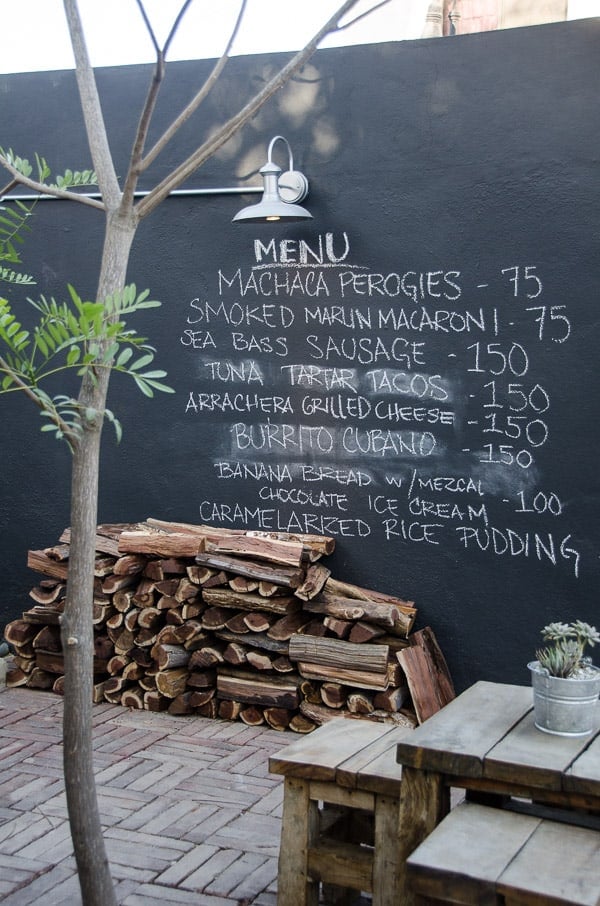 MENU
MACHACA PEROGIES - 75
SMOKED MARLIN MACARONI - 75
SEA BASS SAUSAGE - 150
TUNA TARTAR TACOS - 150
ARRACHERA GRILLED CHEESE - 150
BURRITO CUBANO - 150
BANANA BREAD W/MEZCAL
CHOCOLATE ICE CREAM - 100
CARAMELARIZED RICE PUDDING